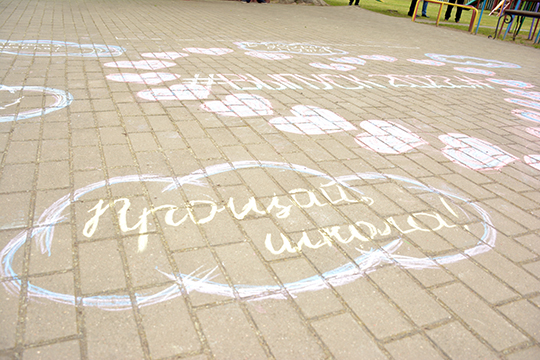 #ВЫПУСК2023
Прощай,
школа!